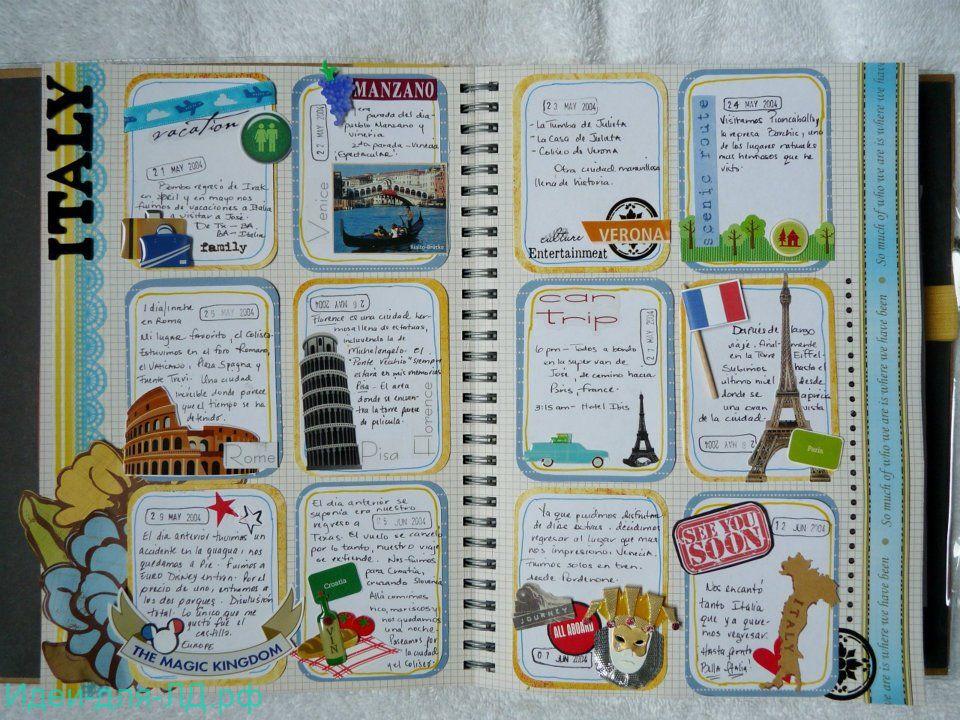 ITALY
vacation
21 MAY 2004
Pembo regresó de Irak
en april y en mayo nos
fuimos de vacaciones a Italia
a visitar a José.
De TX - BA
BA - Italia
family
MANZANO
22 MAY 2004
parada del dia -
pueblo Manzano y
vineria
2da parada - Venecia
¡Espectacular!
Venice
Rialto-Brücke
23 MAY 2004
- La Tumba de Julieta
- La Casa de Julieta
- Coliseo de Verona
Otra ciudad maravillosa
llena de historia.
culture
VERONA
Entertainment
24 MAY 2004
Visitamos
la represa y uno
de los lugares naturales
mas hermosos que he
visto.
scenic route
1 dia/1 noche
en Roma
25 MAY 2004
Mi lugar favorito, el Coliseo
Estuvimos en el foro Romano,
el Vaticano, Plaza Spagna y
Fuente Trevi. Una ciudad
increíble donde parece
que el tiempo se ha
detenido.
Rome
26 MAY 2004
Florence es una ciudad her-
mosa llena de estatuas,
incluyendo la de
Michelangelo. El
"Ponte Vecchio" siempre
estará en mis memorias
Pisa - El area
donde se encuen-
tra la torre parece
de película.
Pisa
Florence
car
trip
27 MAY 2004
6 pm - Todos a bordo
en la super van de
José, de camino hacia
Paris, France.
3:15 am - Hotel Ibis
Después de largo
viaje, finalmente
en la Torre Eiffel.
Subimos hasta el
ultimo nivel desde
donde se aprecia
una gran vista
de la ciudad.
28 MAY 2004
Paris
29 MAY 2004
El dia anterior tuvimos un
accidente en la guagua; nos
quedamos a Pie. Fuimos a
Euro Disney en tren. Por el
precio de uno, entramos a
los dos parques. Disilusión
total. Lo único que me
gustó fue el
castillo.
EUROPE
THE MAGIC KINGDOM
El dia anterior se
suponía era nuestro
regreso a
05 JUN 2004
Texas. El vuelo se canceló
por lo tanto, nuestro viaje
se extiende. Nos fuimos
para Croatia,
cruzando Slovenia.
Allá comimos
rico, mariscos y
nos quedamos
una noche.
Paseamos por
la ciudad
y el Coliseo.
Croatia
Ya que pudimos disfrutar
de días extras, decidimos
regresar al lugar que mas
nos impresionó: Venecia.
Fuimos solos en tren
desde Pordenone.
JOURNEY
ALL ABOARD
07 JUN 2004
SEE YOU
SOON
12 JUN 2004
Nos encantó
tanto Italia
que ya quere-
mos regresar.
Hasta pronto
Bella Italia!
ITALY
So much of who we are is where we have been
So much of who we are is where we have been
Идеи-для-ЛД.рф